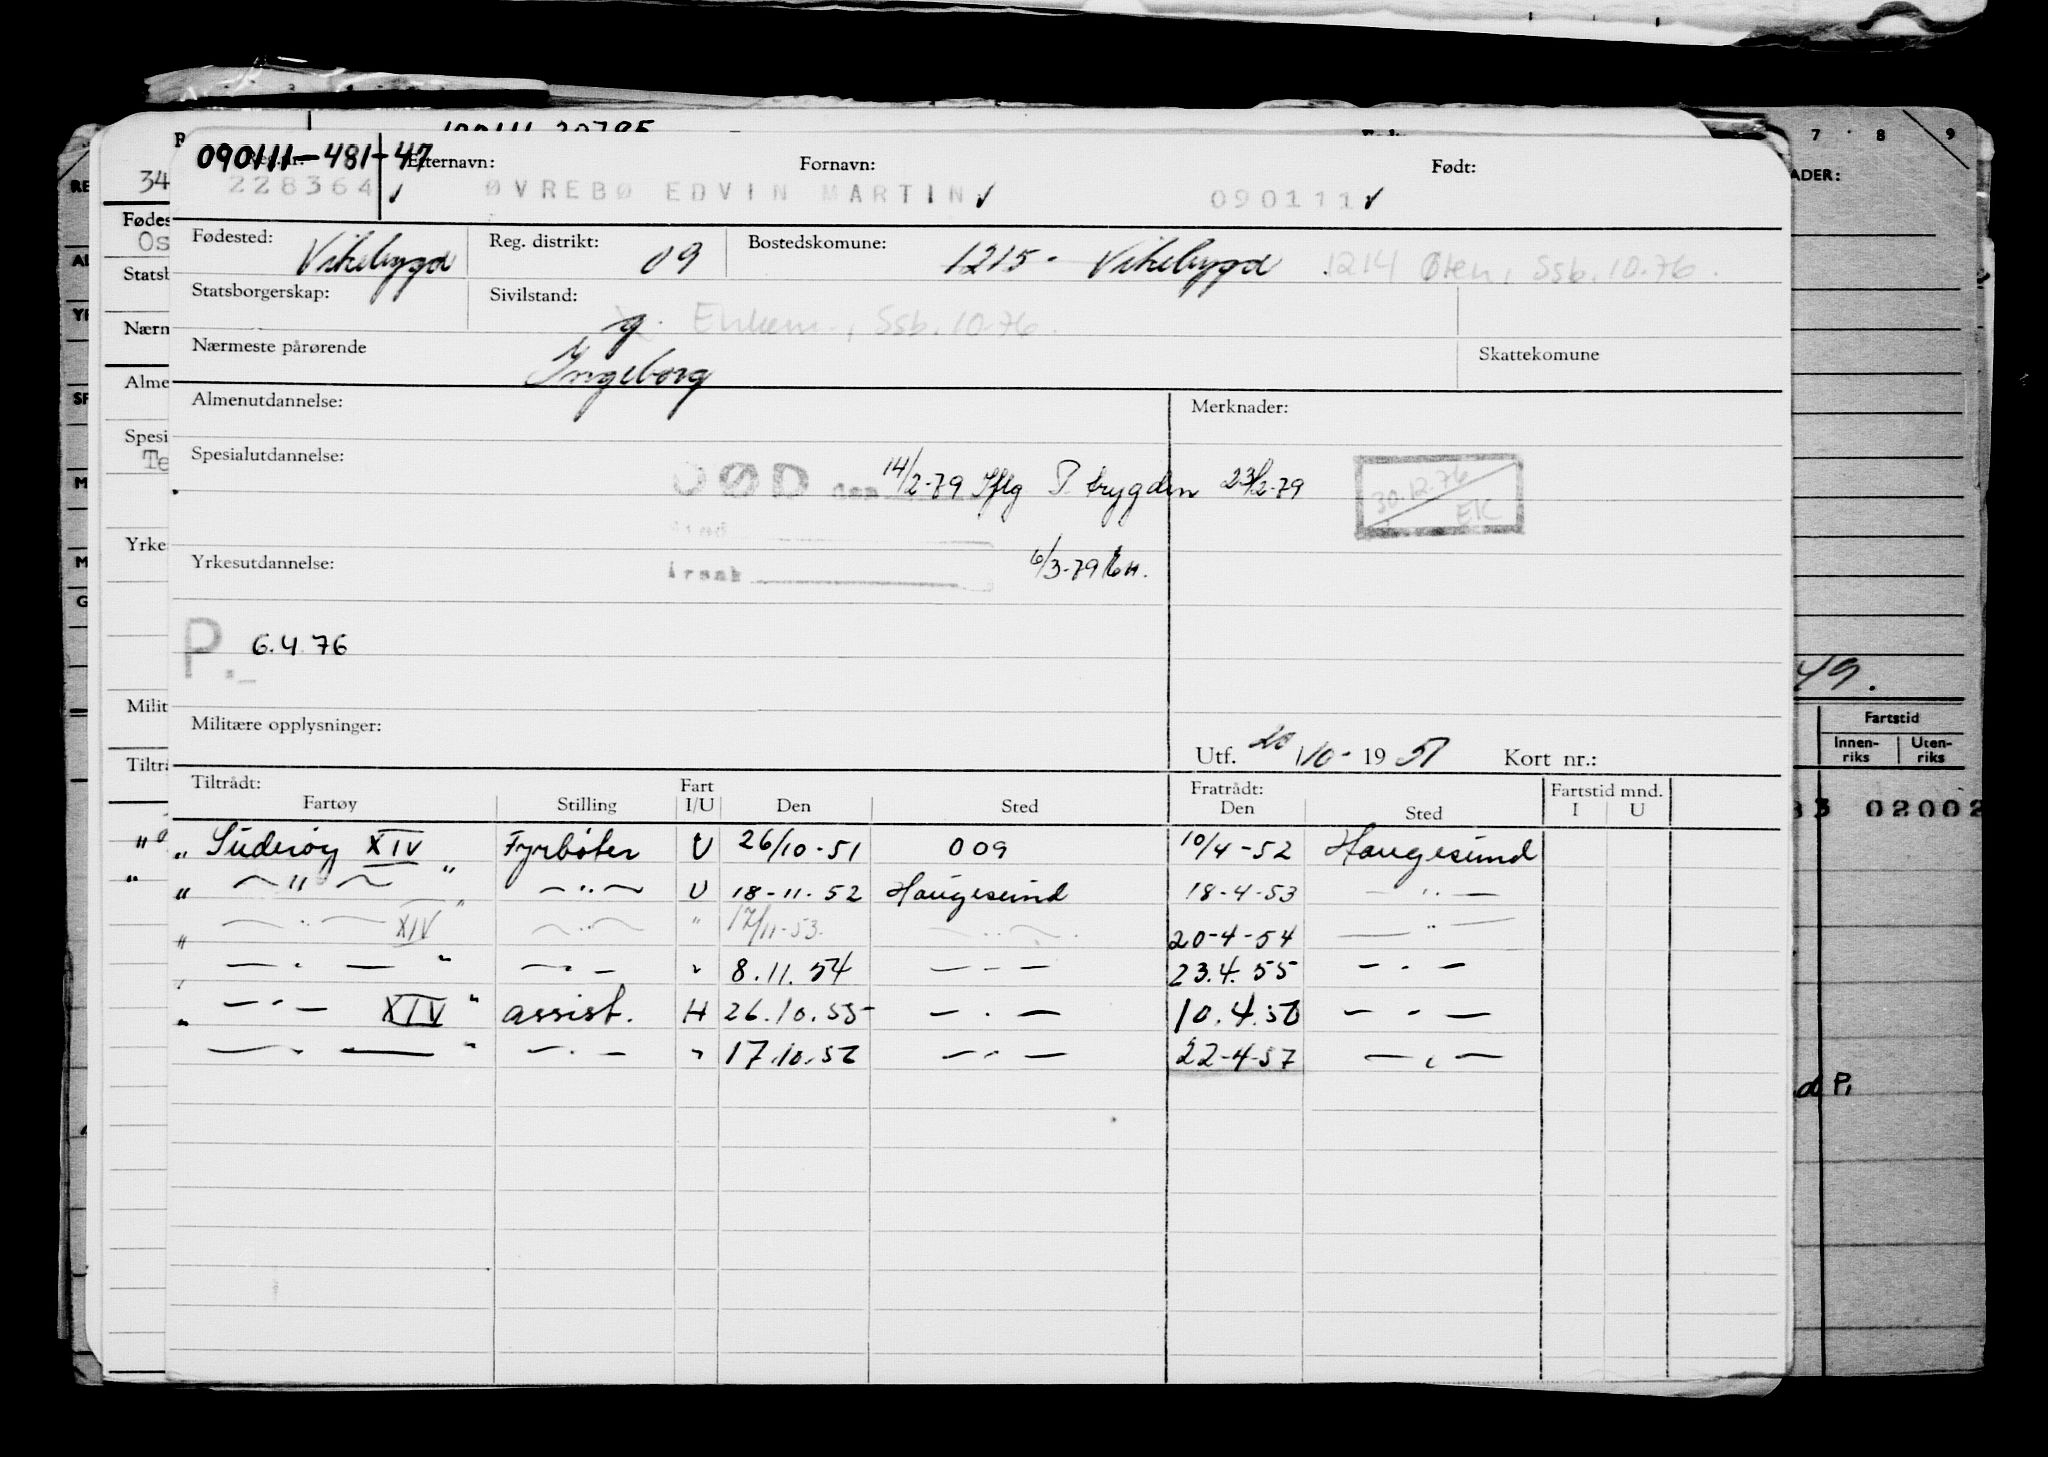 090111-481-47 Etternavn: Fornavn: Født:
228364 ✓ ØVREBØ EDVIN MARTIN ✓ 090111 ✓
Fødested: Vikebygd Reg. distrikt: 09 Bostedskomune: 1215- Vikebygd 1214 Ølen, Ssb. 10.76.
Statsborgerskap: Sivilstand: g. Enkem., Ssb. 10.76.
Nærmeste pårørende Ingeborg Skattekomune
Almenutdannelse: Merknader:
Spesialutdannelse: DØD den 14/2-79 Iflg P. trygden 23/2-79 30.12.76 EK
Sted
Yrkesutdannelse: Årsak 6/3-79
P. 6.4.76
Militære opplysninger:
Utf. 20/10-1951 Kort nr.:
Tiltrådt: Fart Fratrådt: Fartstid mnd.
Fartøy Stilling I/U Den Sted Den Sted I U
" Suderøy XIV " Fyrbøter U 26/10-51 009 10/4-52 Haugesund
" — " — " — " — U 18-11.52 Haugesund 18-4-53 — " —
" — " — XIV — " — " 17/11-53. — " — 20-4-54 — " —
— " — " — " — " 8.11.54 — " — 23.4.55 — " —
" — " — XIV " assist. H 26.10.55 — " — 10.4.56 — " —
— " — " — " — " 17.10.56 — " — 22-4-57 — " —
34
Fødes
Os
Statsb
Nærm
Alme
Spesi
Te
Yrke
Milit
Tiltrå
7 8 9
ADER:
49.
Fartstid
Innen-riks Uten-riks
02002